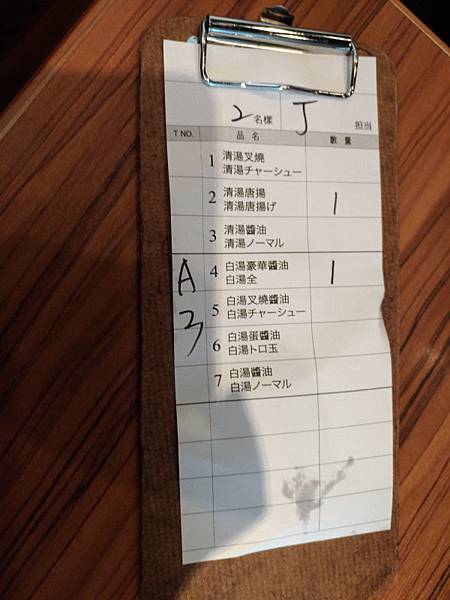 2 名様 J 担当
T NO. 品名 数量
1 清湯叉燒
清湯チャーシュー
2 清湯唐揚 1
清湯唐揚げ
3 清湯醬油
清湯ノーマル
A 4 白湯豪華醬油 1
白湯全
3 5 白湯叉燒醬油
白湯チャーシュー
6 白湯蛋醬油
白湯トロ玉
7 白湯醬油
白湯ノーマル